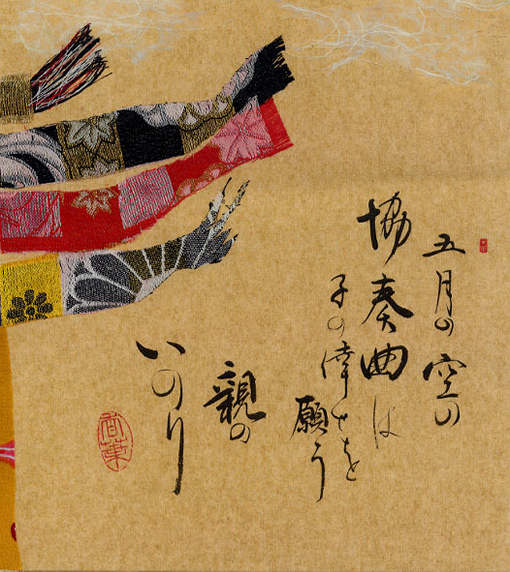 五月の空の
協奏曲は
子の倖せを
願う
親の
いのり